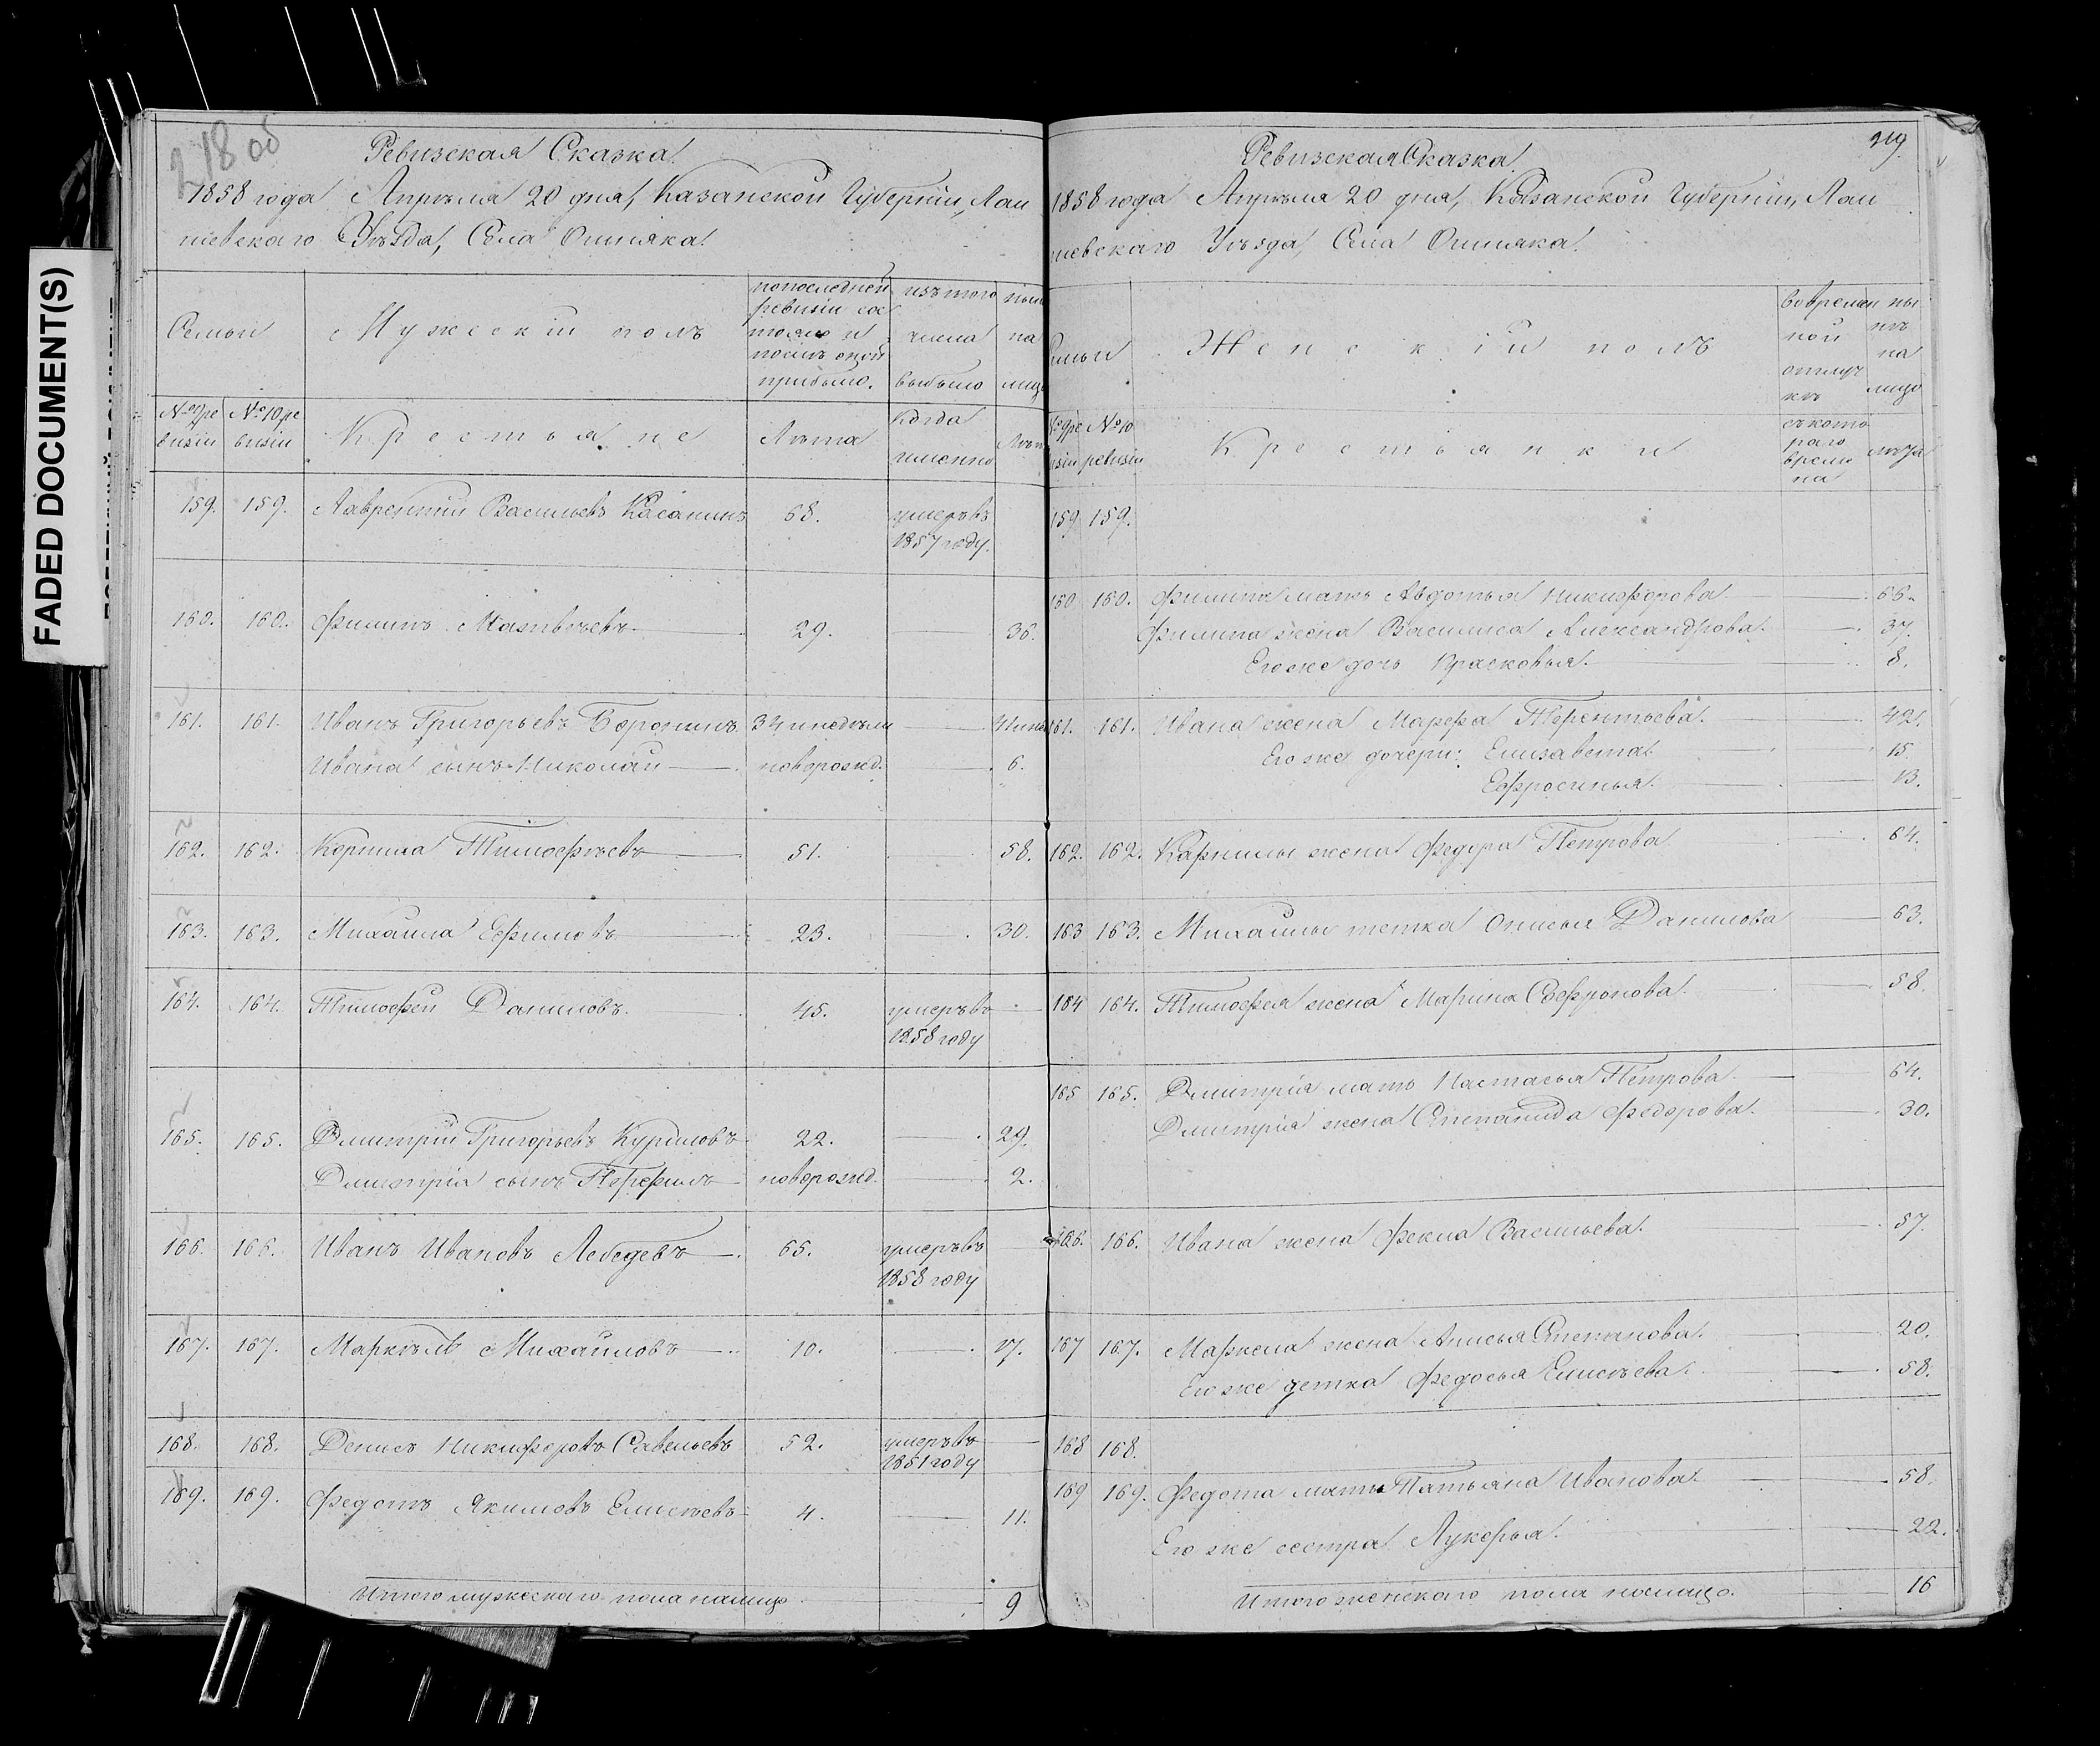 FADED DOCUMENT(S)
218 об
Ревизская Сказка.
1858 года Апрѣля 20 дня, Казанской Губерніи, Лаи
шевскаго Уѣзда, Села Ошняка.
Семьи
Мужескій полъ
по последней
ревизіи сос
тояло и
послѣ оной
прибыло.
изъ того
числа
выбыло
ныне
на
лицо
№ 9 ре
визіи
№ 10 ре
визіи
Крестьяне
Лѣта
Когда
именно
Лѣта
159. 159. Лаврентій Васильевъ Касаткинъ 68. умеръ въ
1857 году.
160. 160. Филипъ Матвѣевъ 29. 36.
161. 161. Иванъ Григорьевъ Боронинъ 34 и недѣли 41
Ивана сынъ Николай новорожд. 6.
162. 162. Корнила Тимофѣевъ 51. 58.
163. 163. Михаила Ефимовъ 23. 30.
164. 164. Тимофей Даниловъ. 45. умеръ въ
1858 году
165. 165. Дмитрій Григорьевъ Куриловъ 22. 29.
Дмитрія сынъ Перфилъ новорожд. 2.
166. 166. Иванъ Ивановъ Лебедевъ 65. умеръ въ
1858 году
167. 167. Маркѣлъ Михайловъ 10. 17.
168. 168. Денисъ Никифоровъ Савельевъ 52. умеръ въ
1851 году
169. 169. Федотъ Якимовъ Елисѣевъ 4. 11.
Итого мужескаго пола налицо 9
219.
Ревизская Сказка
1858 года Апрѣля 20 дня, Казанской Губерніи, Лаи
шевскаго Уѣзда, Села Ошняка.
Семьи
Женскій полъ
во времен
ной
отлуч
кѣ
ны
нѣ
на
лицо
№ 9 ре
визіи
№ 10
ревизіи
Крестьянки
съ кото
раго
време
на
лѣта
159. 159.
160. 160. Филипа мать Авдотья Никифорова. 66.
Филипа жена Василиса Александрова. 37.
Его же дочь Прасковья. 8.
161. 161. Ивана жена Марфа Терентьева. 42.
Его же дочери: Елизавета. 15.
Ефросинья. 13.
162. 162. Карнилы жена Федора Петрова 64.
163 163. Михаилы тетка Онисья Данилова 63.
164 164. Тимофея жена Марина Софронова. 58.
165 165. Дмитрія мать Настасья Петрова. 64.
Дмитрія жена Степанида Федорова. 30.
166. 166. Ивана жена Фекла Васильева. 57.
167 167. Маркела жена Анисья Степанова. 20.
Его же тетка Федосья Елисѣева. 58.
168 168.
169 169. Федота мать Татьяна Иванова. 58.
Его же сестра Лукерья. 22.
Итого женскаго пола налицо. 16